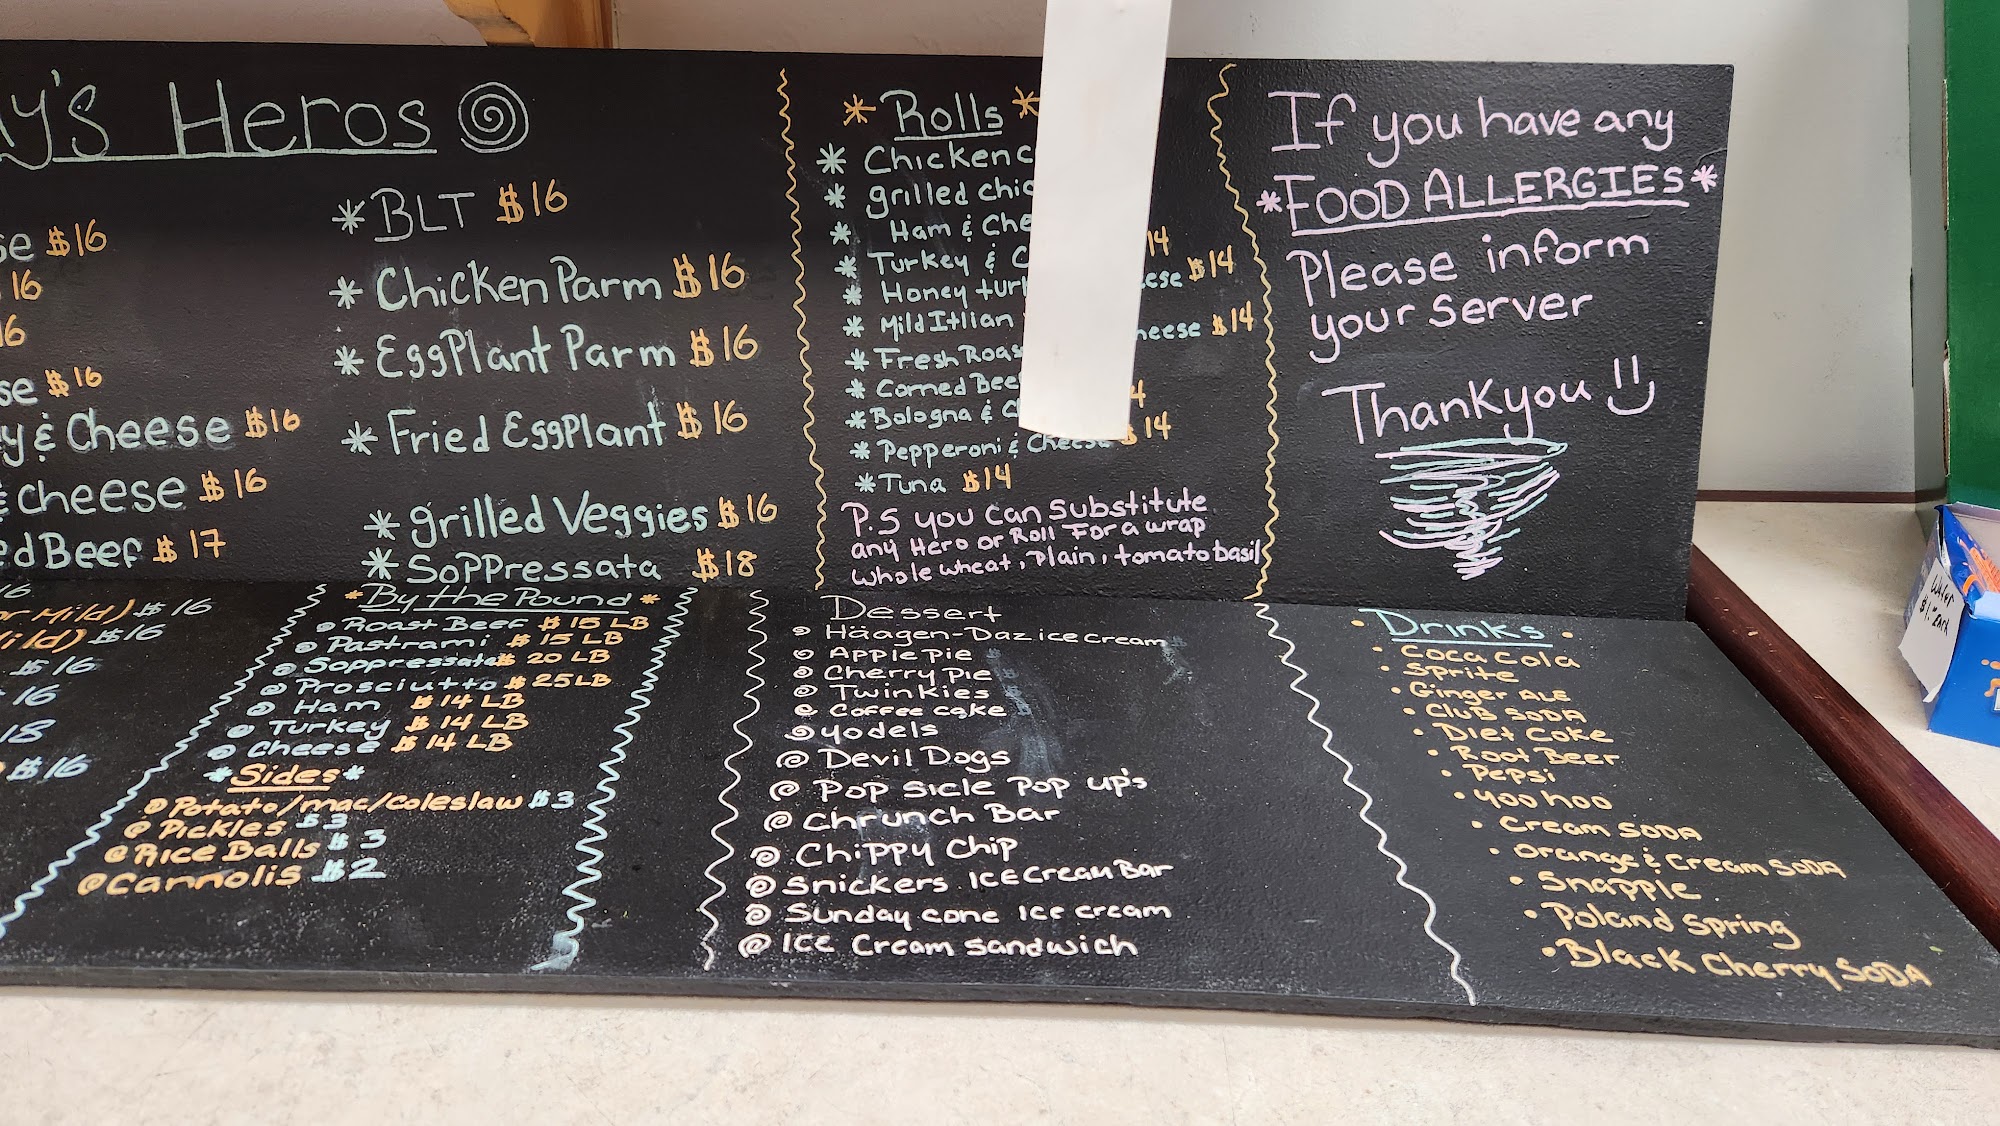 y's Heros
se $16
16
16
se $16
y & Cheese $16
& cheese $16
ed Beef $17
* BLT $16
* Chicken Parm $16
* EggPlant Parm $16
* Fried EggPlant $16
* grilled Veggies $16
* SoPPressata $18
* Rolls *
* Chicken C
* grilled chic
* Ham & Che
* Turkey & C 14
* Honey turk ese $14
* Mild Itlian heese $14
* Fresh Roas
* Corned Beef 4
* Bologna & C $14
* Pepperoni & Cheese
* Tuna $14
P.S you can Substitute
any Hero or Roll For a wrap
whole wheat, Plain, tomato basil
If you have any
*FOOD ALLERGIES*
Please inform
your server
Thank you
16
or Mild) $16
ild) $16
$16
16
18
$16
*By the Pound*
Roast Beef $15 LB
Pastrami $15 LB
Soppressata $20 LB
Prosciutto $25 LB
Ham $14 LB
Turkey $14 LB
Cheese $14 LB
*Sides*
Potato/mac/coleslaw $3
Pickles $3
Rice Balls $3
Cannolis $2
Dessert
Häagen-Daz ice cream
Apple Pie
Cherry Pie
Twinkies
Coffee cake
yodels
Devil Dogs
Pop sicle Pop up's
Chrunch Bar
ChiPPY Chip
Snickers ICE Cream Bar
Sunday cone Ice cream
Ice Cream sandwich
• Drinks •
• Coca Cola
• Sprite
• Ginger ALE
• CLUB SODA
• Diet Coke
• Root Beer
• Pepsi
• yoo hoo
• Cream SODA
• Orange & Cream SODA
• Snapple
• Poland Spring
• Black Cherry SODA
Water